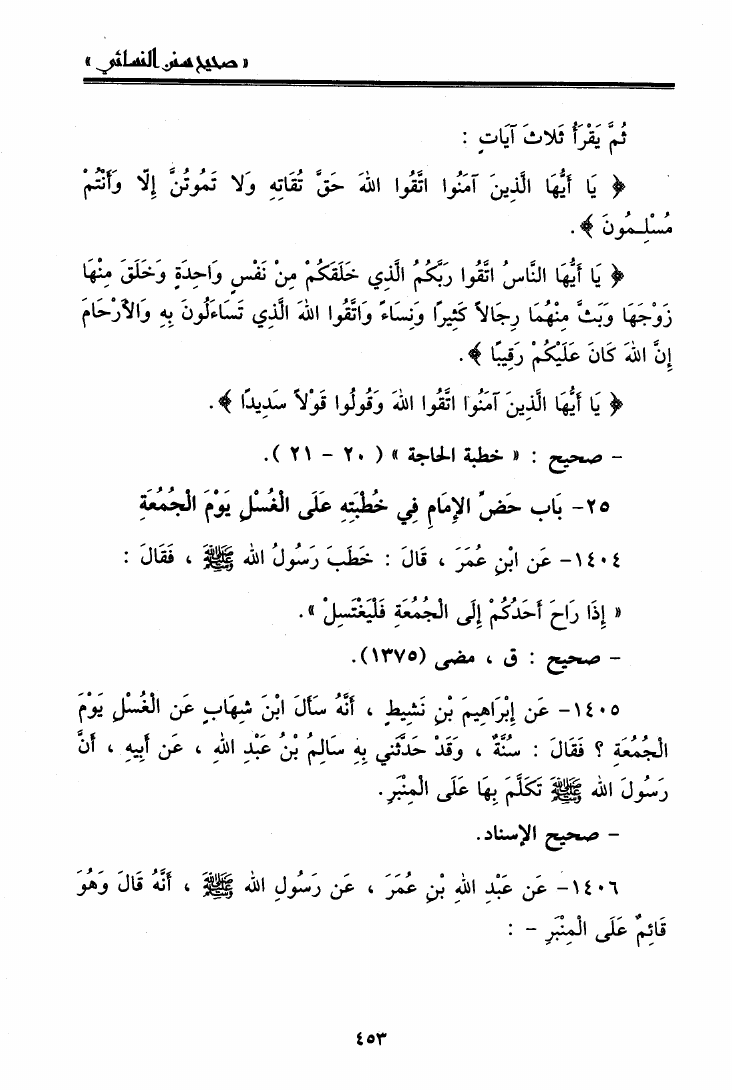 « صحيح سنن النسائي »
ثُمَّ يَقْرَأُ ثَلَاثَ آيَاتٍ :
﴿ يَا أَيُّهَا الَّذِينَ آمَنُوا اتَّقُوا اللهَ حَقَّ تُقَاتِهِ وَلَا تَمُوتُنَّ إِلَّا وَأَنْتُمْ
مُسْلِمُونَ ﴾.
﴿ يَا أَيُّهَا النَّاسُ اتَّقُوا رَبَّكُمُ الَّذِي خَلَقَكُمْ مِنْ نَفْسٍ وَاحِدَةٍ وَخَلَقَ مِنْهَا
زَوْجَهَا وَبَثَّ مِنْهُمَا رِجَالاً كَثِيرًا وَنِسَاءً وَاتَّقُوا اللهَ الَّذِي تَسَاءَلُونَ بِهِ وَالأَرْحَامَ
إِنَّ اللهَ كَانَ عَلَيْكُمْ رَقِيبًا ﴾.
﴿ يَا أَيُّهَا الَّذِينَ آمَنُوا اتَّقُوا اللهَ وَقُولُوا قَوْلاً سَدِيدًا ﴾.
– صحيح : « خطبة الحاجة » ( ٢٠ – ٢١ ).
٢٥– بَاب حَضِّ الإِمَامِ فِي خُطْبَتِهِ عَلَى الْغُسْلِ يَوْمَ الْجُمُعَةِ
١٤٠٤– عَن ابْنِ عُمَرَ ، قَالَ : خَطَبَ رَسُولُ الله ﷺ ، فَقَالَ :
« إِذَا رَاحَ أَحَدُكُمْ إِلَى الْجُمُعَةِ فَلْيَغْتَسِلْ ».
– صحيح : ق ، مضى (١٣٧٥).
١٤٠٥– عَن إِبْرَاهِيمَ بْنِ نَشِيطٍ ، أَنَّهُ سَأَلَ ابْنَ شِهَابٍ عَن الْغُسْلِ يَوْمَ
الْجُمُعَةِ ؟ فَقَالَ : سُنَّةٌ ، وَقَدْ حَدَّثَنِي بِهِ سَالِمُ بْنُ عَبْدِ اللهِ ، عَن أَبِيهِ ، أَنَّ
رَسُولَ الله ﷺ تَكَلَّمَ بِهَا عَلَى الْمِنْبَرِ.
– صحيح الإسناد.
١٤٠٦– عَن عَبْدِ اللهِ بْنِ عُمَرَ ، عَن رَسُولِ الله ﷺ ، أَنَّهُ قَالَ وَهُوَ
قَائِمٌ عَلَى الْمِنْبَرِ – :
٤٥٣